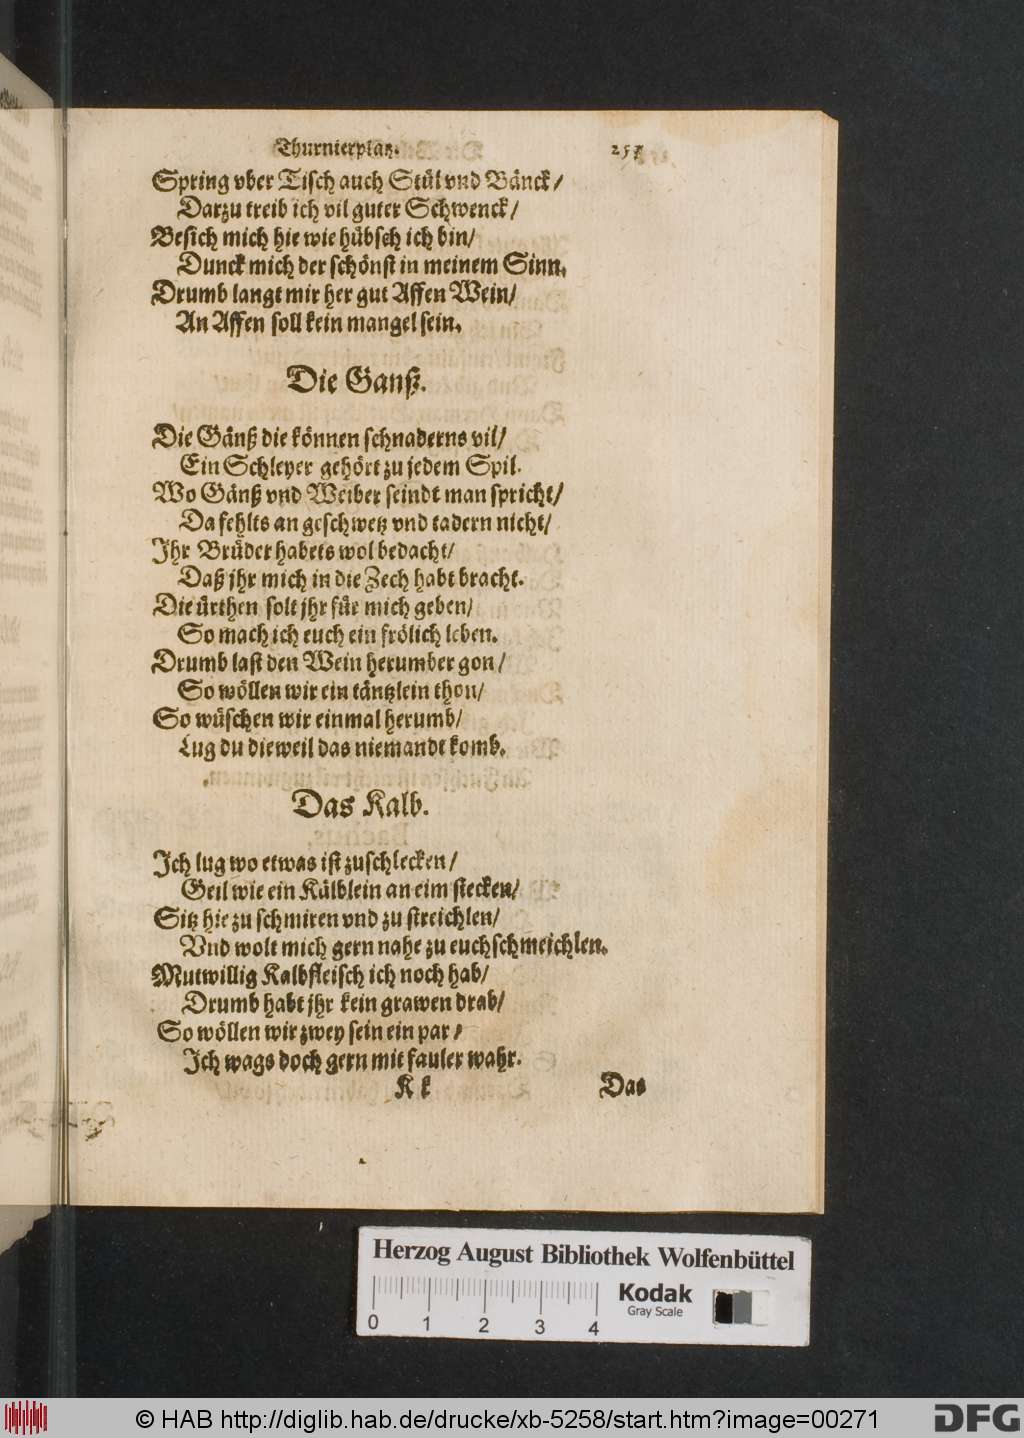 Thurnierplatz. 257
Spring vber Tisch auch Stül vnd Bänck/
Darzu treib ich vil guter Schwenck/
Besich mich hie wie hübsch ich bin/
Dunck mich der schönst in meinem Sinn.
Drumb langt mir her gut Affen Wein/
An Affen soll kein mangel sein.
Die Ganß.
Die Gänß die können schnaderns vil/
Ein Schleyer gehört zu jedem Spil.
Wo Gänß vnd Weiber seindt man spricht/
Da fehlts an geschwetz vnd tadern nicht/
Ihr Brüder habets wol bedacht/
Daß jhr mich in die Zech habt bracht.
Die ürthen solt jhr für mich geben/
So mach ich euch ein frölich leben.
Drumb last den Wein herumber gon/
So wöllen wir ein täntzlein thon/
So wüschen wir einmal herumb/
Lug du dieweil das niemandt komb.
Das Kalb.
Ich lug wo etwas ist zuschlecken/
Geil wie ein Kälblein an eim stecken/
Sitz hie zu schmiren vnd zu streichlen/
Vnd wolt mich gern nahe zu euch schmeichlen.
Mutwillig Kalbfleisch ich noch hab/
Drumb habt jhr kein grawen drab/
So wöllen wir zwey sein ein par/
Ich wags doch gern mit fauler wahr.
K k Das
Herzog August Bibliothek Wolfenbüttel
Kodak
Gray Scale
0 1 2 3 4
© HAB http://diglib.hab.de/drucke/xb-5258/start.htm?image=00271
DFG